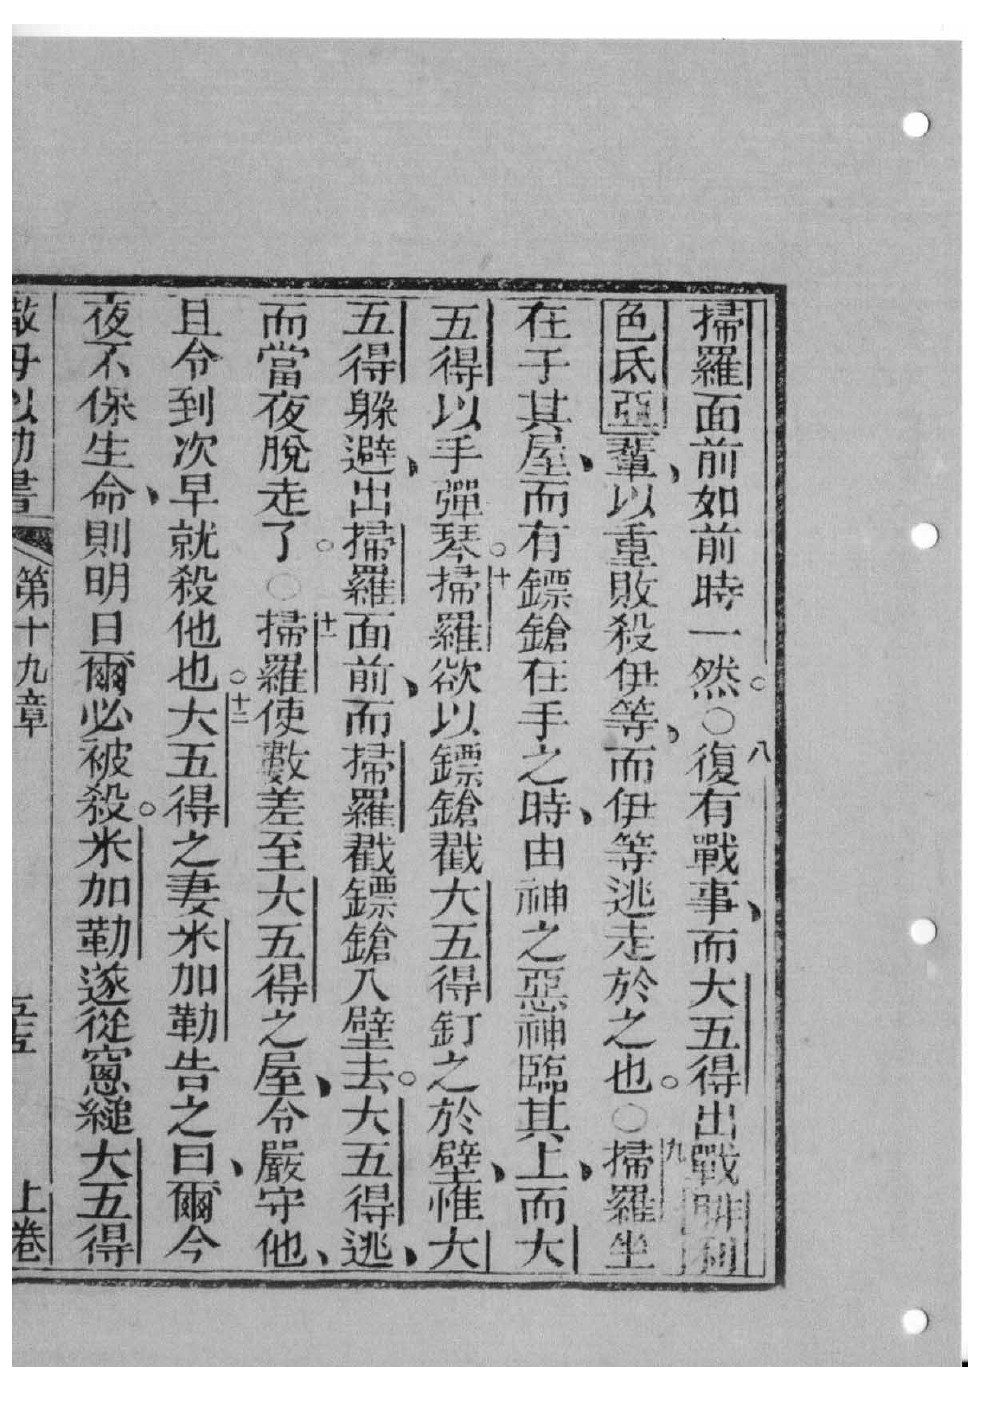 掃羅面前如前時一然。○八復有戰事、而大五得出戰啡利
色氐亞輩、以重敗殺伊等、而伊等逃走於之也。○九掃羅坐
在于其屋、而有鏢鎗在手之時、由神之惡神臨其上、而大
五得以手彈琴。十掃羅欲以鏢鎗戳大五得釘之於壁、惟大
五得躲避、出掃羅面前、而掃羅戳鏢鎗入壁去。大五得逃、
而當夜脫走了。○十一掃羅使數差至大五得之屋、令嚴守他、
且令到次早就殺他也。十二大五得之妻米加勒告之曰、爾今
夜不保生命、則明日爾必被殺。米加勒遂從窻縋大五得
撒母以勒書 第十九章 五 上卷